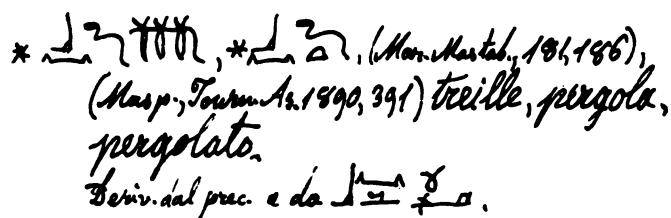 * , * , (Mar. Mastab., 181, 186),
(Masp., Journ. As. 1890, 391) treille, pergola,
pergolato.
Deriv. dal prec. e da .